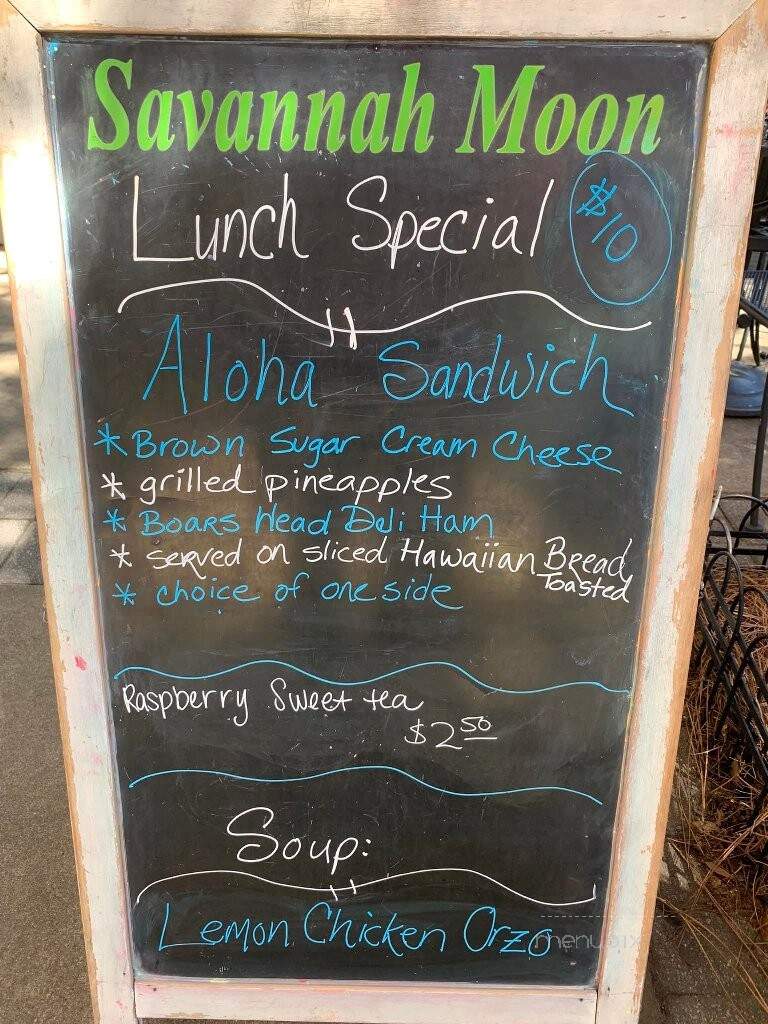 Savannah Moon
Lunch Special $10
Aloha Sandwich
* Brown Sugar Cream Cheese
* grilled pineapples
* Boars Head Deli Ham
* served on sliced Hawaiian Bread
Toasted
* choice of one side
Raspberry Sweet tea
$2 50
Soup:
Lemon Chicken Orzo
menupix